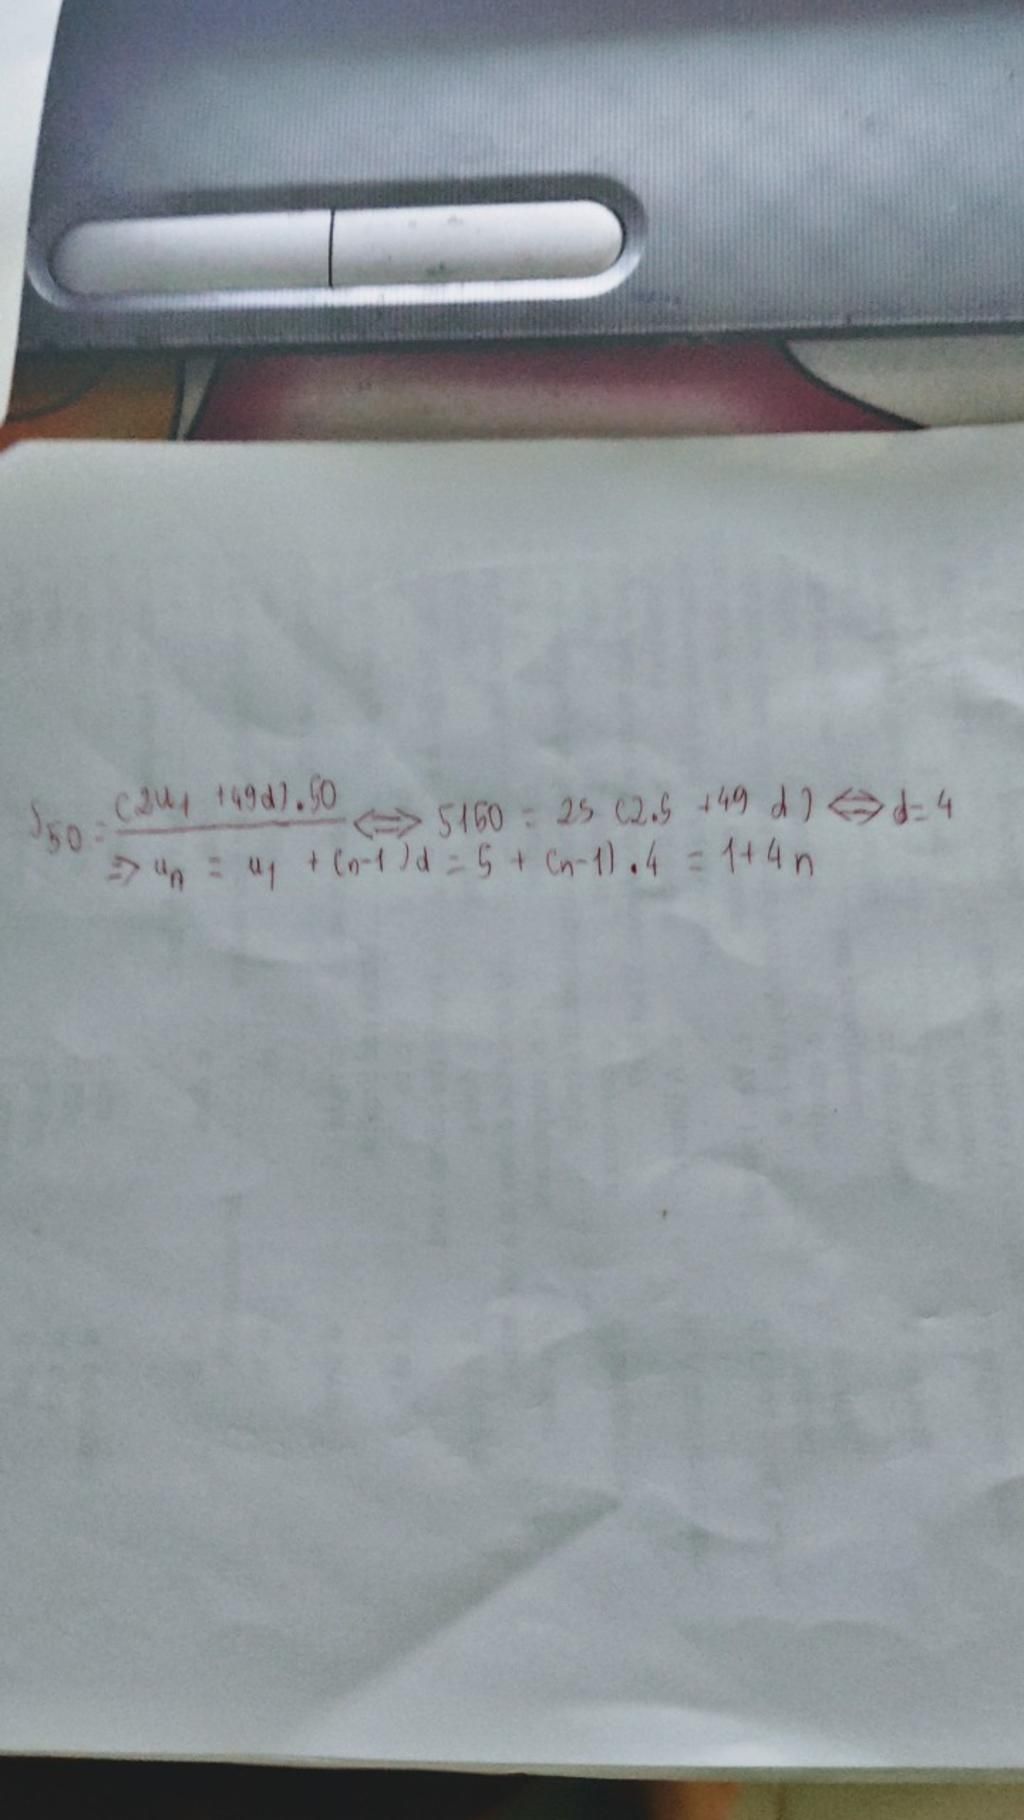 S50 = (2u1 + 49d).50 / 2 ⇔ 5150 = 25 (2.5 + 49 d) ⇔ d = 4
⇒ un = u1 + (n-1)d = 5 + (n-1).4 = 1 + 4n